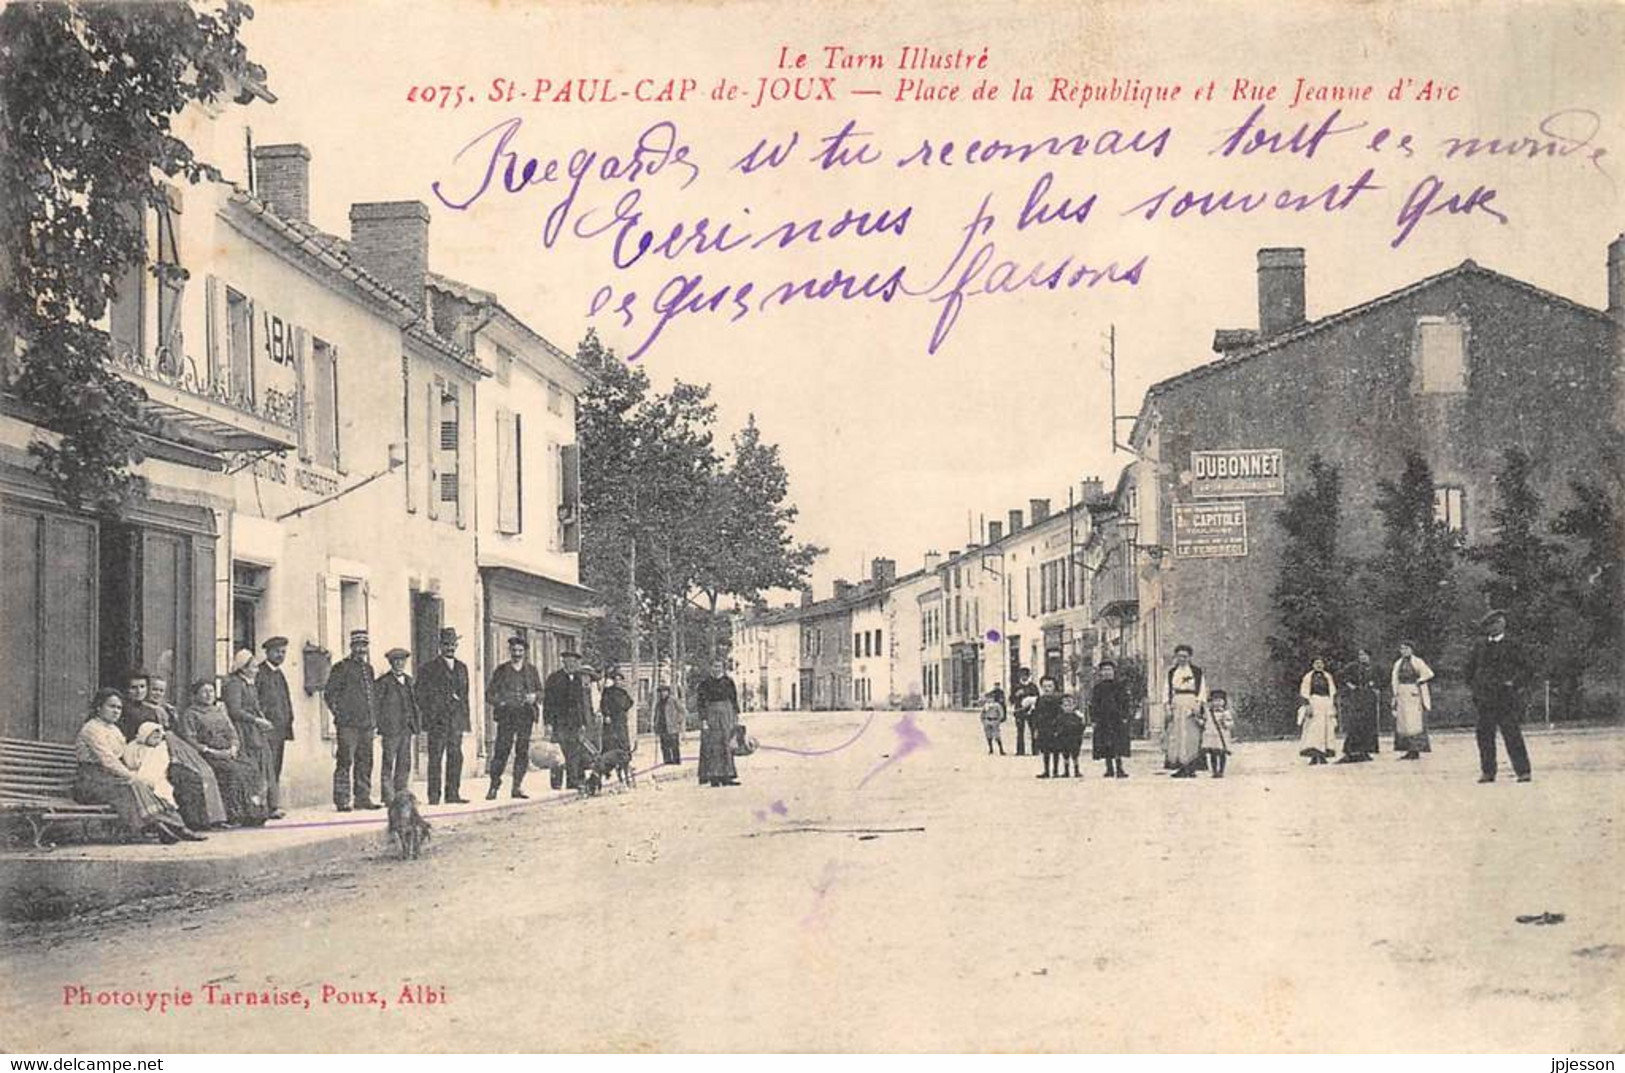 Le Tarn Illustré
4075. St-PAUL-CAP-de-JOUX — Place de la République et Rue Jeanne d'Arc
Regarde si tu reconnais tout ce monde
Ecri nous plus souvent que
ce que nous faisons
ABA
INDIRECTES
DUBONNET
CAPITOLE
LE VENDREDI
Phototypie Tarnaise, Poux, Albi
jpjesson